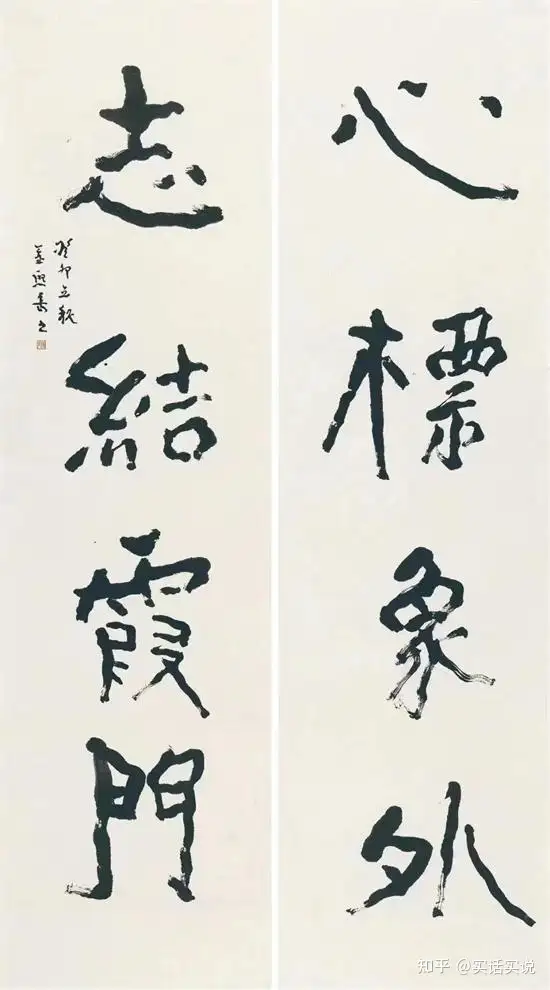 心標象外
志結霞門
癸卯立秋
知乎 @实话实说